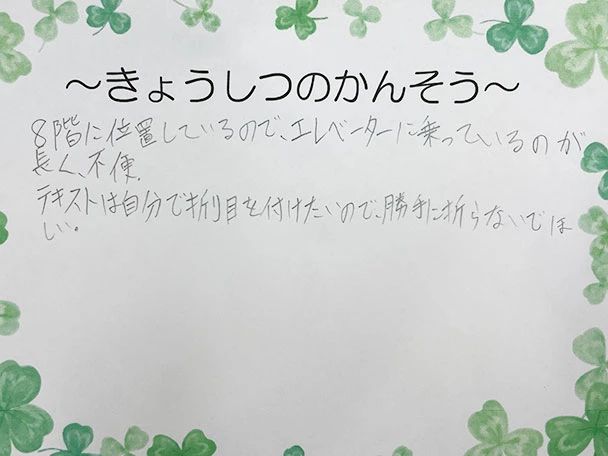 ～きょうしつのかんそう～
8階に位置しているので、エレベーターに乗っているのが
長く、不便。
テキストは自分で折り目を付けたいので、勝手に折らないでほ
しい。